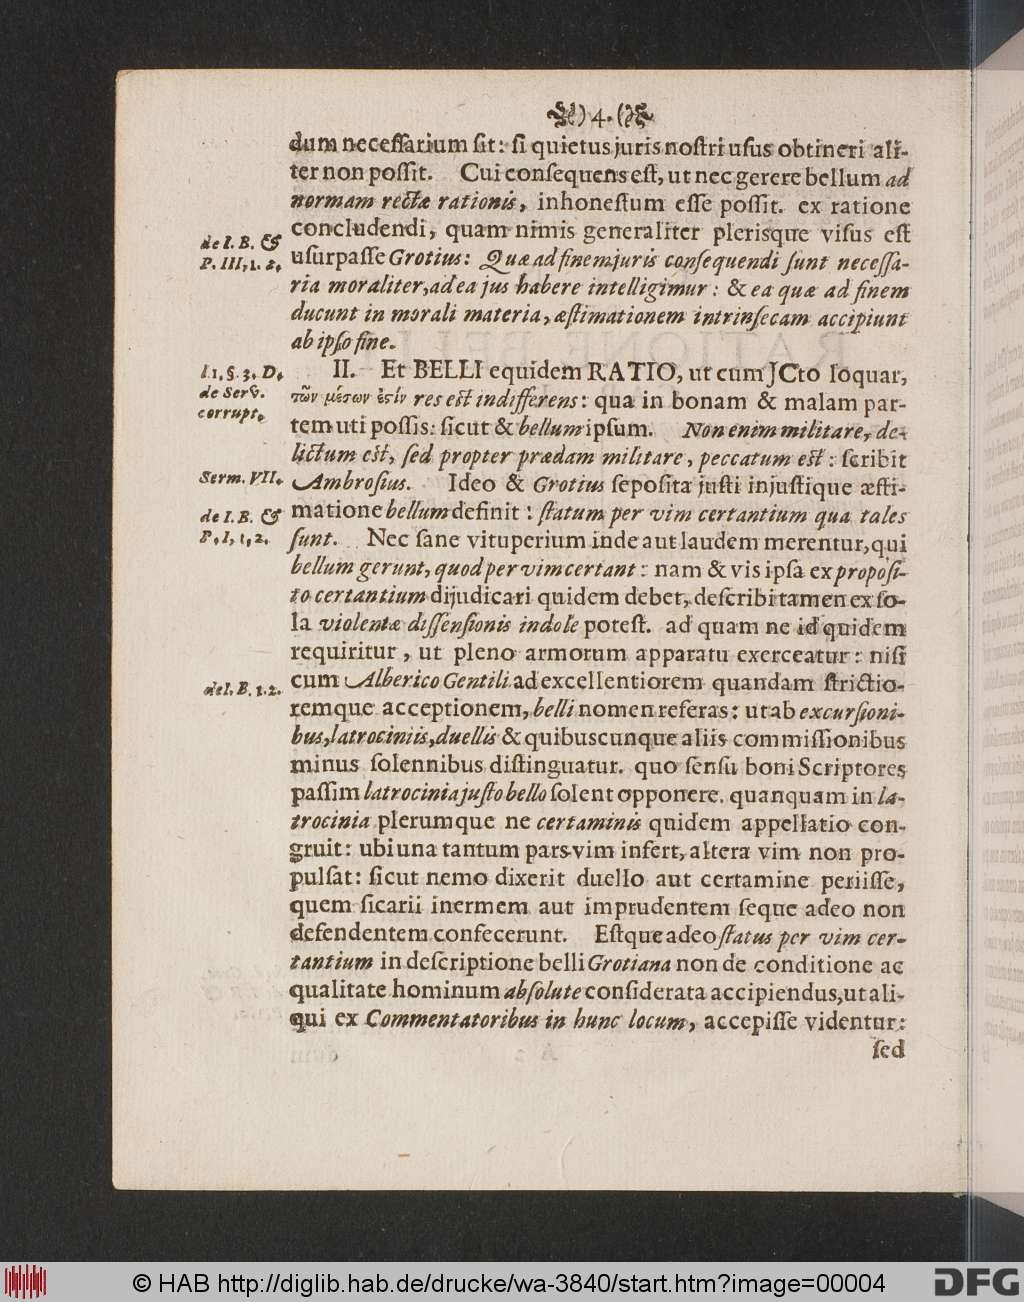 ) 4. (
dum neceſſarium ſit: ſi quietus juris noſtri uſus obtineri ali-
ter non poſſit. Cui conſequens eſt, ut nec gerere bellum ad
normam rectæ rationis, inhoneſtum eſſe poſſit. ex ratione
concludendi, quam nimis generaliter plerisque viſus eſt
de I. B. &
uſurpaſſe Grotius: Quæ ad finem juris conſequendi ſunt neceſſa-
P. III, 1. 2.
ria moraliter, ad ea jus habere intelligimur: & ea quæ ad finem
ducunt in morali materia, æſtimationem intrinſecam accipiunt
ab ipſo fine.
l 1. §. 3. D.
II. Et BELLI equidem RATIO, ut cum JCto loquar,
de Serv.
τῶν μέσων ἐςίν res eſt indifferens: qua in bonam & malam par-
corrupt.
tem uti poſſis: ſicut & bellum ipſum. Non enim militare, de-
lictum eſt, ſed propter prædam militare, peccatum eſt: ſcribit
Serm. VII.
Ambroſius. Ideo & Grotius ſepoſita juſti injuſtique æſti-
de I. B. &
matione bellum definit: ſtatum per vim certantium qua tales
P. I, 1, 2.
ſunt. Nec ſane vituperium inde aut laudem merentur, qui
bellum gerunt, quod per vim certant: nam & vis ipſa ex propoſi-
to certantium dijudicari quidem debet, deſcribi tamen ex ſo-
la violentæ diſſenſionis indole poteſt. ad quam ne id quidem
requiritur, ut pleno armorum apparatu exerceatur: niſi
de I. B. 1. 2.
cum Alberico Gentili ad excellentiorem quandam ſtrictio-
remque acceptionem, belli nomen referas: ut ab excurſioni-
bus, latrociniis, duellis & quibuscunque aliis commiſſionibus
minus ſolennibus diſtinguatur. quo ſenſu boni Scriptores
paſſim latrocinia juſto bello ſolent opponere. quanquam in la-
trocinia plerumque ne certaminis quidem appellatio con-
gruit: ubi una tantum pars vim infert, altera vim non pro-
pulſat: ſicut nemo dixerit duello aut certamine periiſſe,
quem ſicarii inermem aut imprudentem ſeque adeo non
defendentem confecerunt. Eſtque adeo ſtatus per vim cer-
tantium in deſcriptione belli Grotiana non de conditione ac
qualitate hominum abſolute conſiderata accipiendus, ut ali-
qui ex Commentatoribus in hunc locum, accepiſſe videntur:
ſed
© HAB http://diglib.hab.de/drucke/wa-3840/start.htm?image=00004
DFG